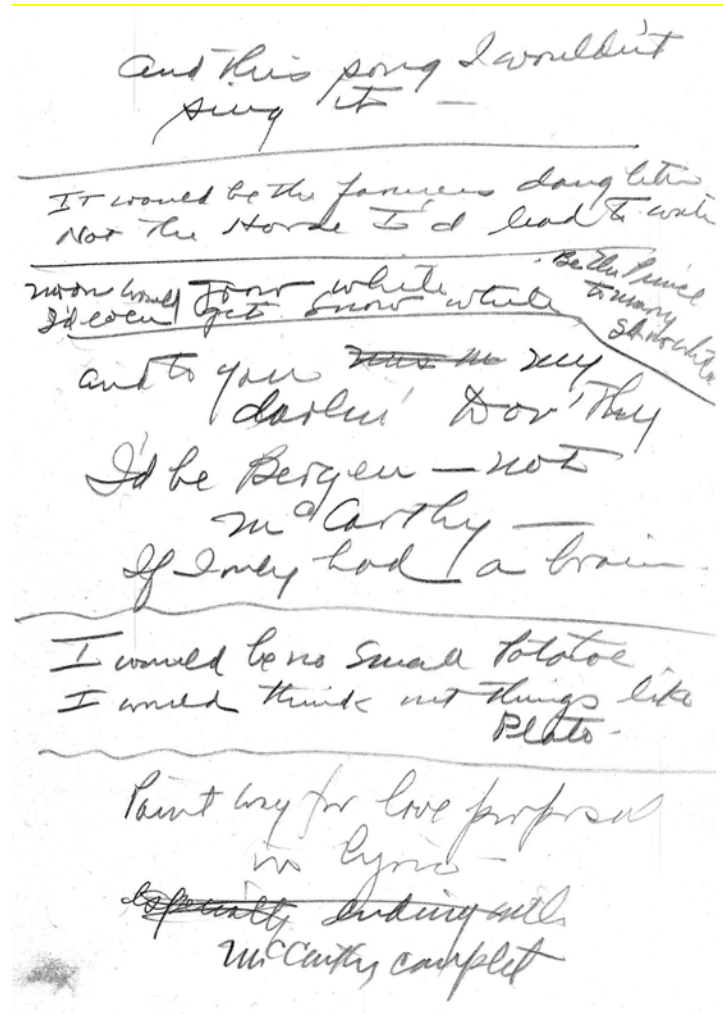 and this song I wouldn't
sing it —
It would be the farmers daughter
Not the Horse I'd lead to wate
Be the Prince
to marry
Snowwhite
moon would grow white
I'd even get Snow white
and to you my
darlin' Dor'thy
I'd be Bergen — not
McCarthy —
If I only had a brain.
I would be no small Potatoe
I would think out things like
Plato.
Point way for love proposal
in lyric —
especially ending with
McCarthy couplet